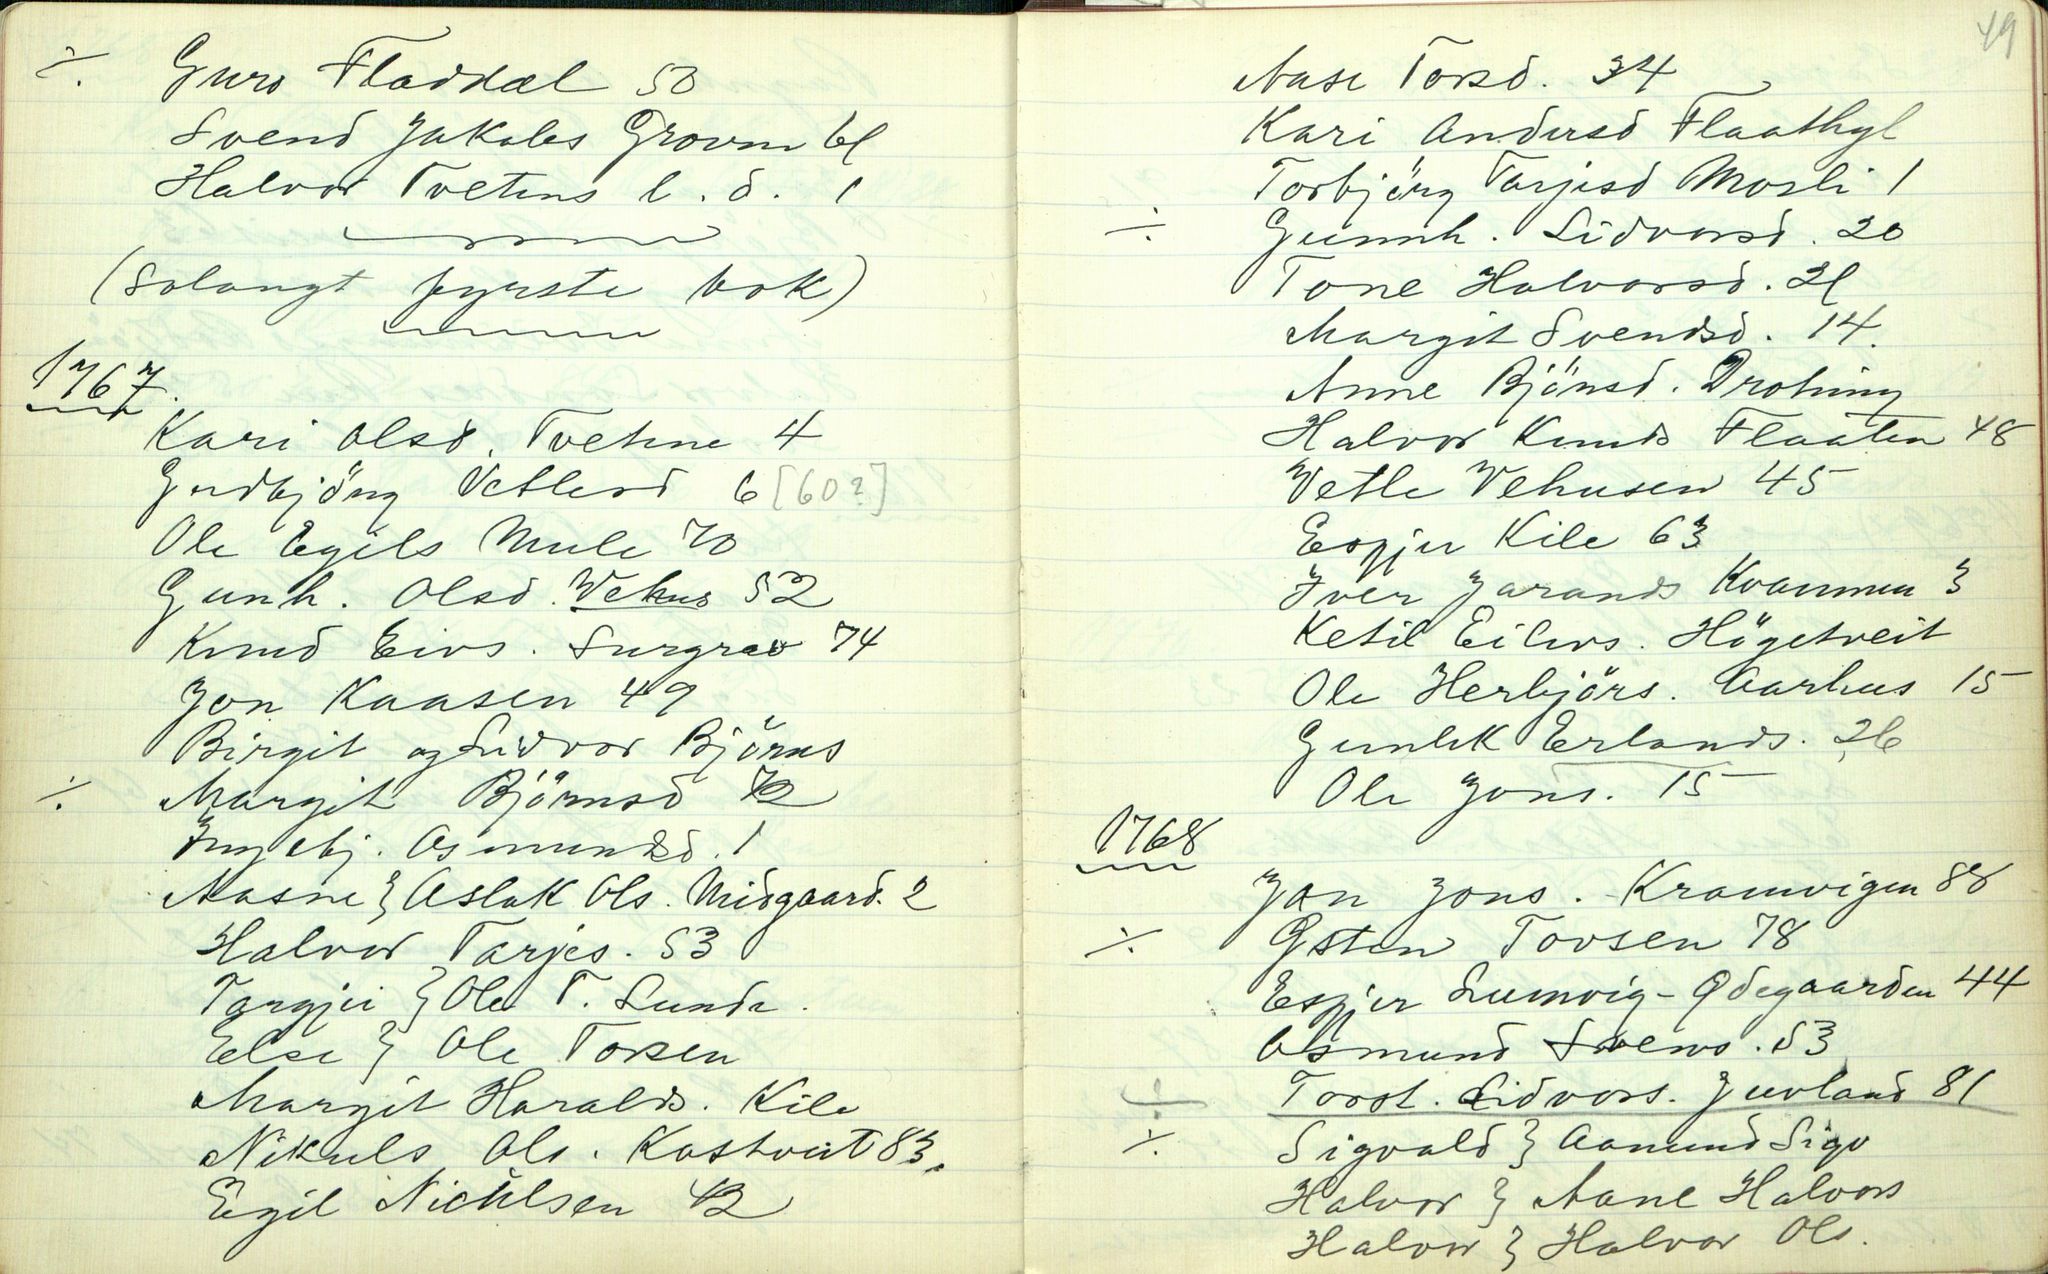 ÷ Guro Fladdal 50
Svend Jakobs Grovm 61
Halvor Tvetens b. d. 1
(Solangt fyrste bok)
1767.
Kari Olsd. Tvetene 4
Gudbjörg Vetlesd 6 [60?]
Ole Egils Mule 70
Gunh. Olsd. Vehus 52
Knud Eivs. Surgrav 74
Jon Kaasen 49
Birgit og Lidvor Björns
÷ Margit Björnsd 72
Ingebj. Asmundsd. 1
Aasne } Aslak Ols. Midgaard. 2
Halvor Tarjes. 53
Targjei } Ole T. Lunde.
Else } Ole Torsen
Margit Haralds. Kile
Nikuls Ols. Kostveit 83.
Egil Nichlsen 42
49
Aase Torsd. 34
Kari Andersd Flaathyl
Torbjörg Tarjesd Mosli 1
÷ Gunnh. Lidvorsd. 20
Tone Halvorsd. 21
Margit Svendsd. 14.
Anne Björnsd. Drotning
Halvor Knuds Flaaten 48
Vetle Vehusen 45
Espjer Kile 63
Iver Jarands Kvammen 3
Ketil Eilevs. Högetveit
Ole Herbjörs. Aarhus 15
Gunlek Erlands. 26
Ole Jons. 15
1768
Jon Jons. Kramvigen 88
÷ Østen Tovsen 78
Espjer Lumvig-Ødegaarden 44
Asmund Svens. 53
÷ Torst. Lidvors. Juvland 81
÷ Sigvald } Aamund Sigv
Halvor } Aane Halvors
Halvor } Halvor Ols.